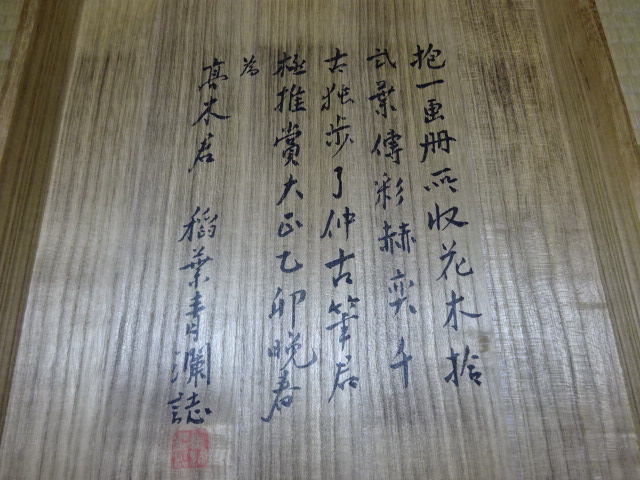 抱一画册所收花木拾
弍葉傳彩赫奕千
古独歩了仲古筆君
極推賞大正乙卯晩春
為
髙木君 稲葉青瀾誌